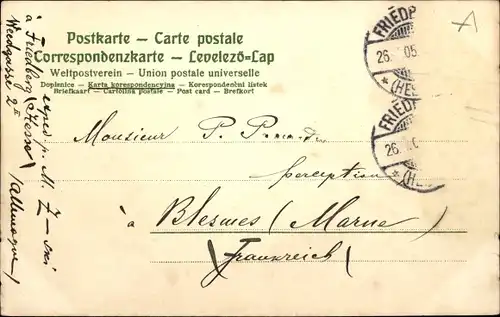 Postkarte — Carte postale
Correspondenzkarte — Levelező-Lap
Weltpostverein — Union postale universelle
Dopisnice — Karta korespondencyjna — Korespondenčni listek
Briefkaart — Cartolina postale — Post card — Brefkort
FRIEDB
26. 05
(HES
FRIED
26.
(HE
Monsieur P. P
perception
à Blesmes (Marne)
(Frankreich)
exped. p. M. Z
à Friedberg (Hesse)
Weedgasse 2
(Allemagne)